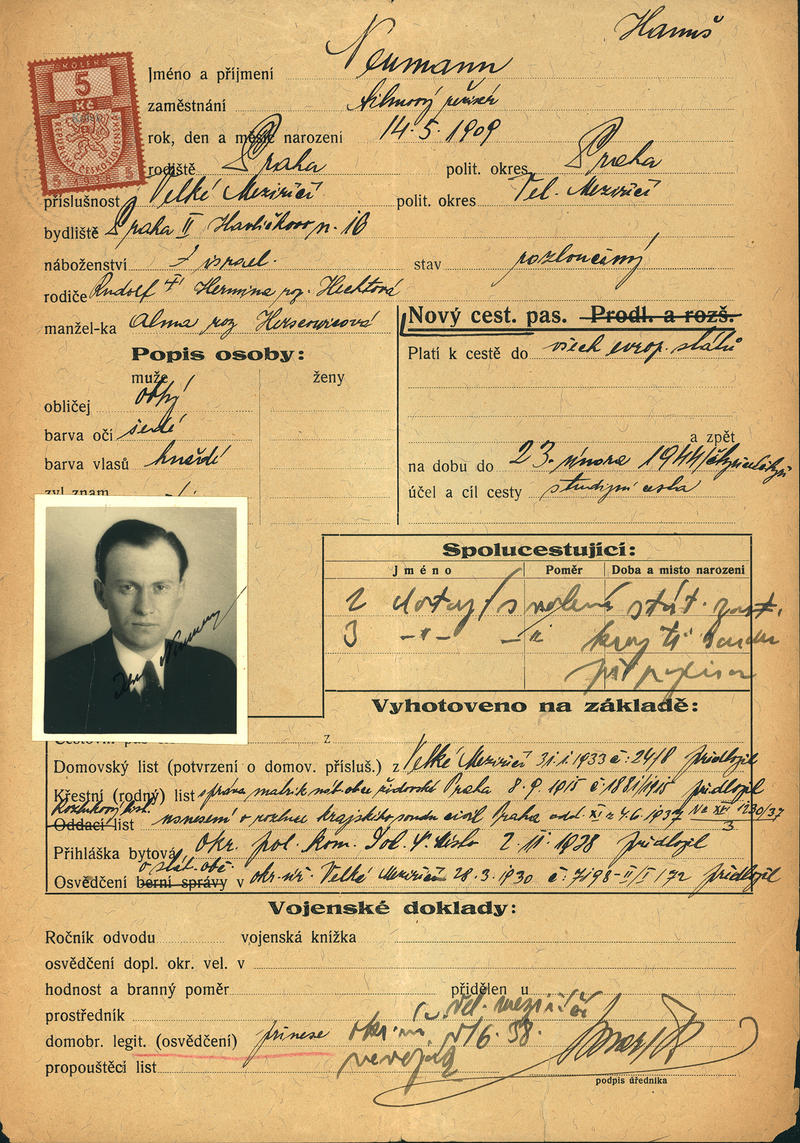 Hanuš
KOLEK
5
Kč
REPUBLIKA ČESKOSLOVENSKÁ
5 5
Jméno a příjmení Neumann
zaměstnání filmový režisér
rok, den a měsíc narození 14. 5. 1909
rodiště Praha polit. okres Praha
příslušnost Velké Meziříčí polit. okres Vel. Meziříčí
bydliště Praha II Havlíčkovo n. 16
náboženství israel. stav rozloučený
rodiče Rudolf Hermina roz. Hechtová
manžel-ka Alma roz
Nový cest. pas. Prodl. a rozš.
Popis osoby:
muže ženy
Platí k cestě do všech evrop. států
obličej
barva očí šedé
a zpět
barva vlasů hnědé
na dobu do 23. února 1944
zvl. znam.
účel a cíl cesty studijní cesta
Spolucestující:
Jméno Poměr Doba a místo narození
2
3
Vyhotoveno na základě:
z
Domovský list (potvrzení o domov. přísluš.) z Velké Meziříčí 31. 1. 1933 č. 24/8 předložil
Křestní (rodný) list správa matrik náb. obce židovské Praha 8. 9. 1915 č 1881/1915 předložil
Rozlukový list
Oddací list usnesení o rozluce krajského soudu civil Praha odd. XI z 4. 6. 1937
Přihláška bytová okr. pol. kom. 2. II. 1938 předložil
o stát. obč.
Osvědčení berní správy v okr. úř. Velké Meziříčí 28. 3. 1930 č. 7198-II/I 172 předložil
Vojenské doklady:
Ročník odvodu vojenská knížka
osvědčení dopl. okr. vel. v
hodnost a branný poměr přidělen u
prostředník Vel. Meziříčí
domobr. legit. (osvědčení) přinese okr. úř. 6. 38.
propouštěcí list nevoják
podpis úředníka